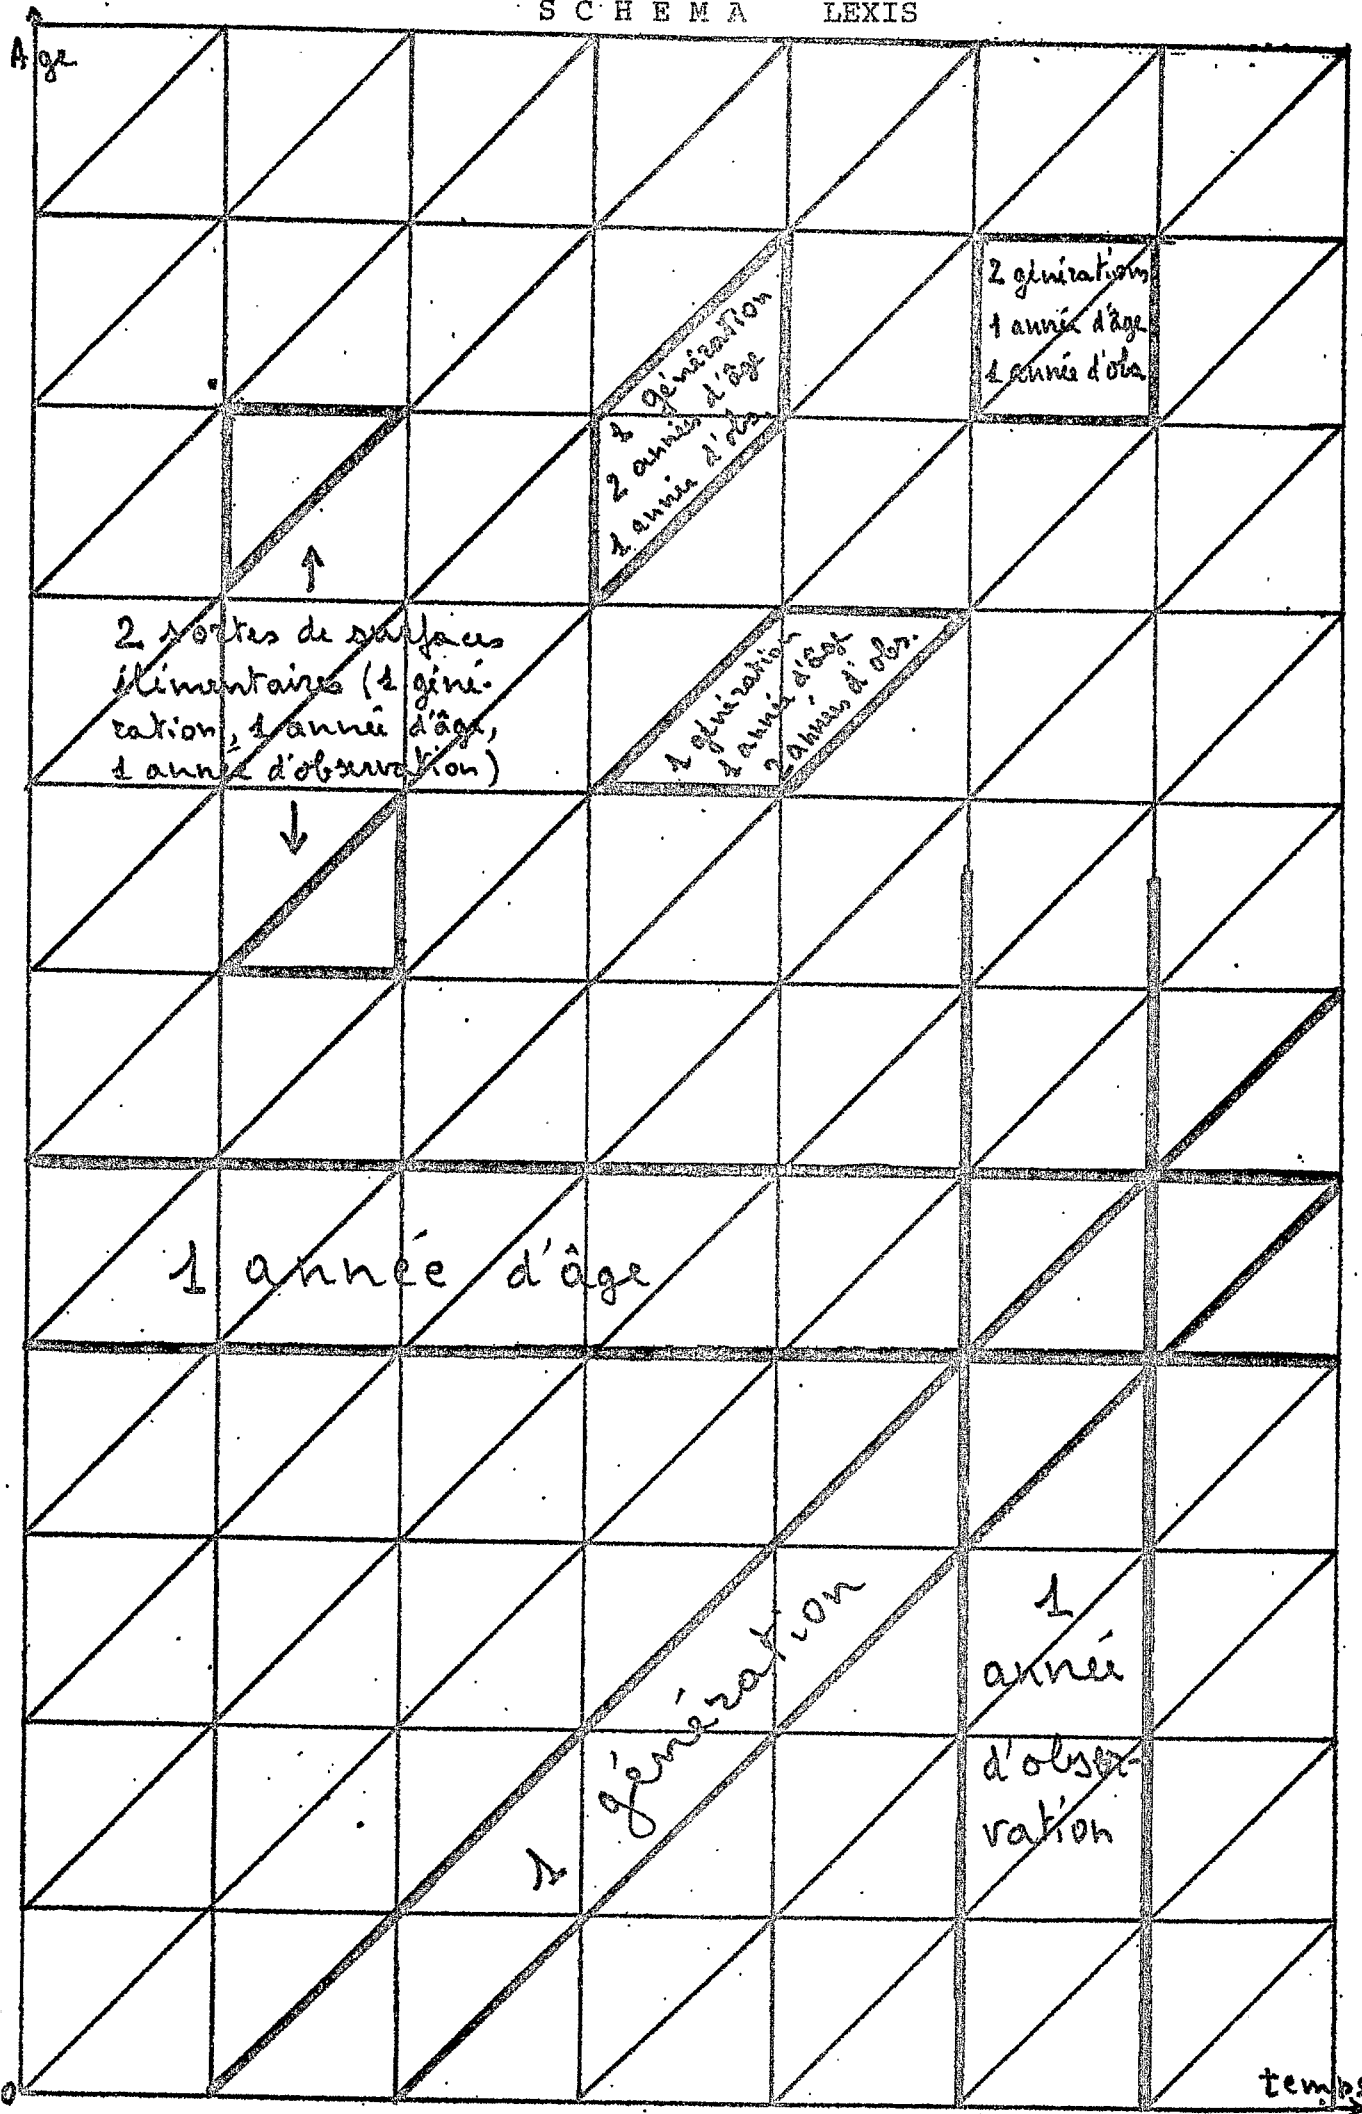 SCHEMA LEXIS
Age
2 générations
1 année d'âge
1 année d'obs
1 génération
2 années d'âge
1 année d'obs.
2 sortes de surfaces
élémentaires (1 géné-
ration, 1 année d'âge,
1 année d'observation)
1 génération
1 année d'âge
2 années d'obs.
1 année d'âge
1 génération
1
année
d'obser-
vation
0
temps